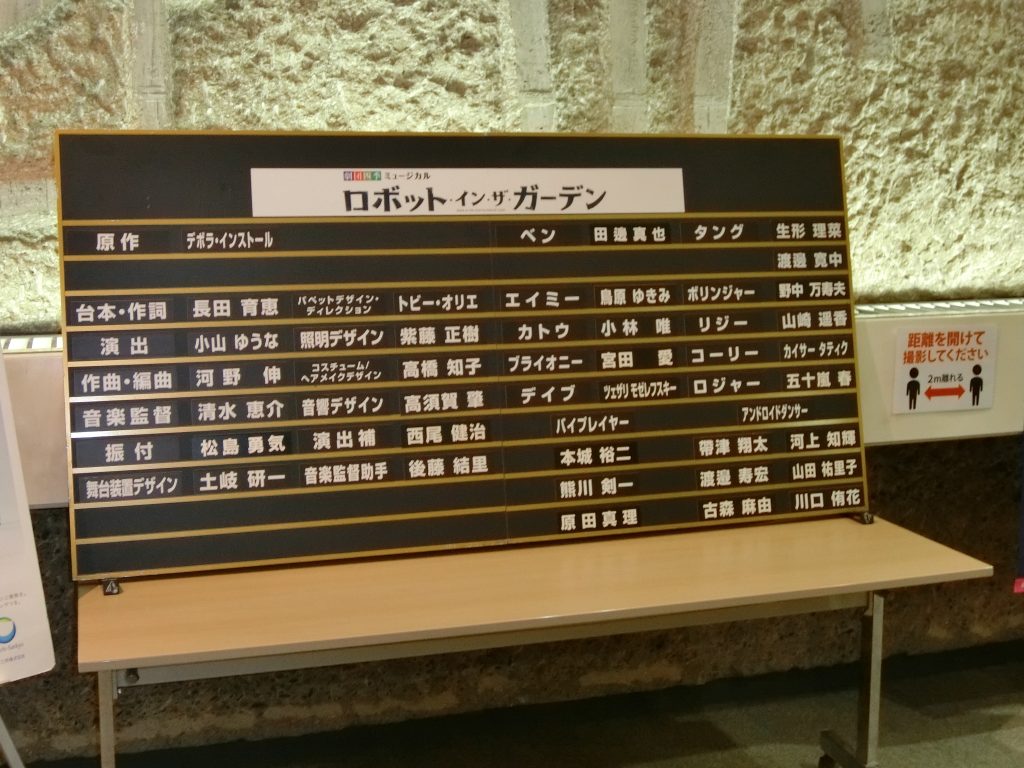 劇団四季 ミュージカル
ロボット・イン・ザ・ガーデン
原作 デボラ・インストール ベン 田邊真也 タング 生形 理菜
渡邉 寛中
台本・作詞 長田 育恵 パペットデザイン・ディレクション トビー・オリエ エイミー 鳥原 ゆきみ ボリンジャー 野中 万寿夫
演出 小山 ゆうな 照明デザイン 紫藤 正樹 カトウ 小林 唯 リジー 山崎 遥香
作曲・編曲 河野 伸 コスチューム/ヘアメイクデザイン 高橋 知子 ブライオニー 宮田 愛 コーリー カイサー タティク
音楽監督 清水 恵介 音響デザイン 高須賀 肇 デイブ ツェザリ モゼレフスキー ロジャー 五十嵐 春
振付 松島 勇気 演出補 西尾 健治 バイプレイヤー アンドロイドダンサー
舞台装置デザイン 土岐 研一 音楽監督助手 後藤 結里 本城 裕二 帶津 翔太 河上 知輝
熊川 剣一 渡邉 寿宏 山田 祐里子
原田 真理 古森 麻由 川口 侑花
距離を開けて
撮影してください
2m離れる